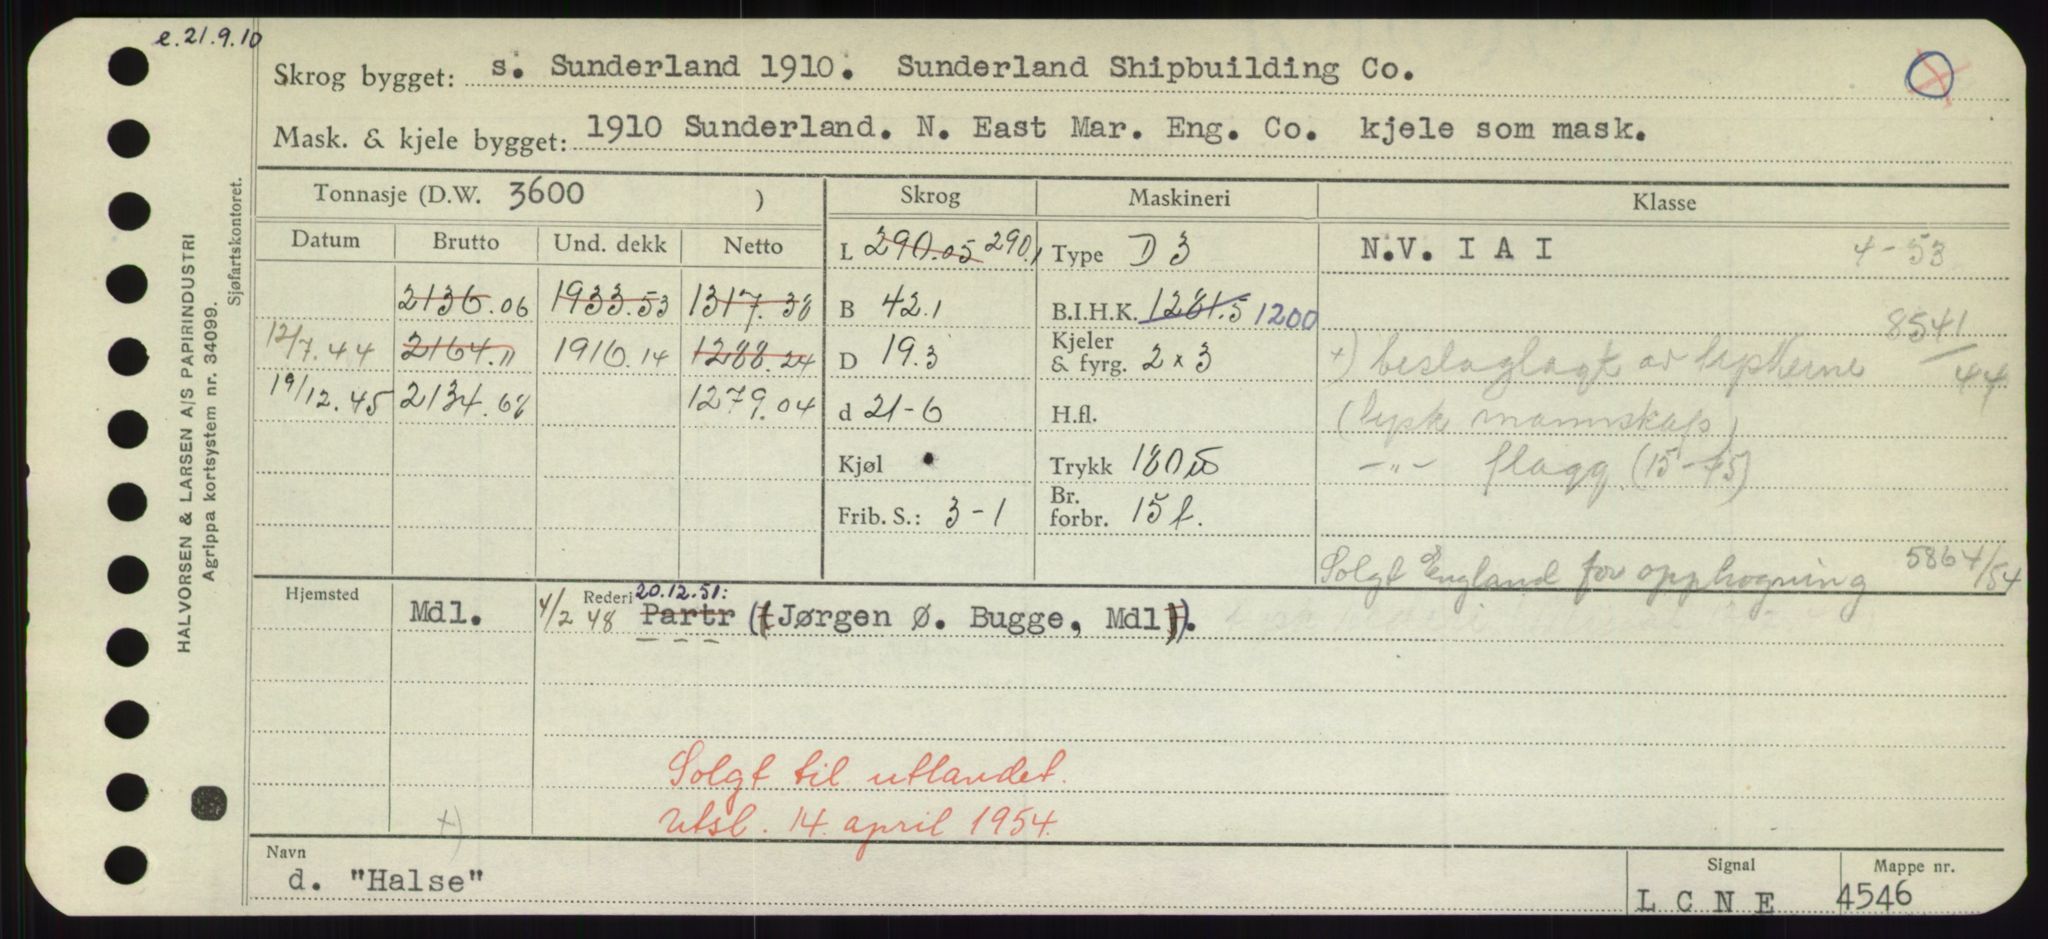 e. 21.9.10
Skrog bygget: s. Sunderland 1910. Sunderland Shipbuilding Co.
Mask. & kjele bygget: 1910 Sunderland. N. East Mar. Eng. Co. kjele som mask.
Tonnasje (D.W. 3600 ) Skrog Maskineri Klasse
Datum Brutto Und. dekk Netto L 290.05 290.1 Type D 3 N.V. I A I 4-53
2136.06 1933.53 1317.38 B 42.1 B.I.H.K. 1281.5 1200
12/7.44 2164.11 1916.14 1288.24 D 19.3 Kjeler & fyrg. 2 x 3 +) beslaglagt av tyskerne 8541/44
19/12.45 2134.68 1279.04 d 21-6 H.fl. (tysk mannskap)
Kjøl Trykk 180 -"- flagg (15-45)
Frib. S.: 3-1 Br. forbr. 15 t.
Solgt England for opphogning 5864/54
Hjemsted Mdl. Rederi 4/2 48 20.12.51: Partr (Jørgen Ø. Bugge, Mdl).
Solgt til utlandet.
Utsl. 14. april 1954.
+)
Navn Signal Mappe nr.
d. "Halse" L C N E 4546
HALVORSEN & LARSEN A/S PAPIRINDUSTRI
Agrippa kortsystem nr. 34099.
Sjøfartskontoret.